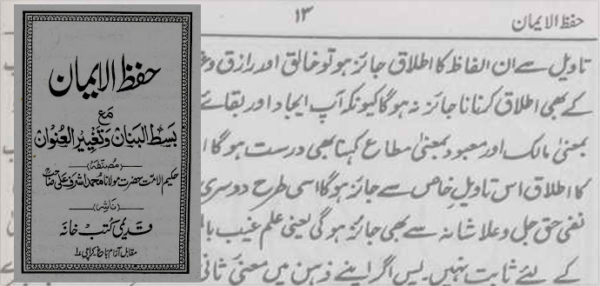 حفظ الایمان
۱۳
تاویل سے ان الفاظ کا اطلاق جائز ہو تو خالق اور رازق وغ
کے بھی اطلاق کرنا ناجائز نہ ہوگا کیونکہ آپ ایجاد اور بقائے
بمعنیٰ مالک اور معبود بمعنیٰ مطاع کہنا بھی درست ہوگا ا
کا اطلاق اس تاویل خاص سے جائز ہوگا اسی طرح دوسری
نفی حق جل و علا شانہ سے بھی جائز ہوگی یعنی علم غیب با
کے لئے ثابت نہیں۔ پس اگر اپنے ذہن میں معنیٰ ثانی
حفظ الایمان
مع
بسط البنان و تغییر العنوان
مصنفہ
حکیم الامت حضرت مولانا محمد اشرف علی صاحب
ناشر
قدیمی کتب خانہ
مقابل آرام باغ کراچی ۱